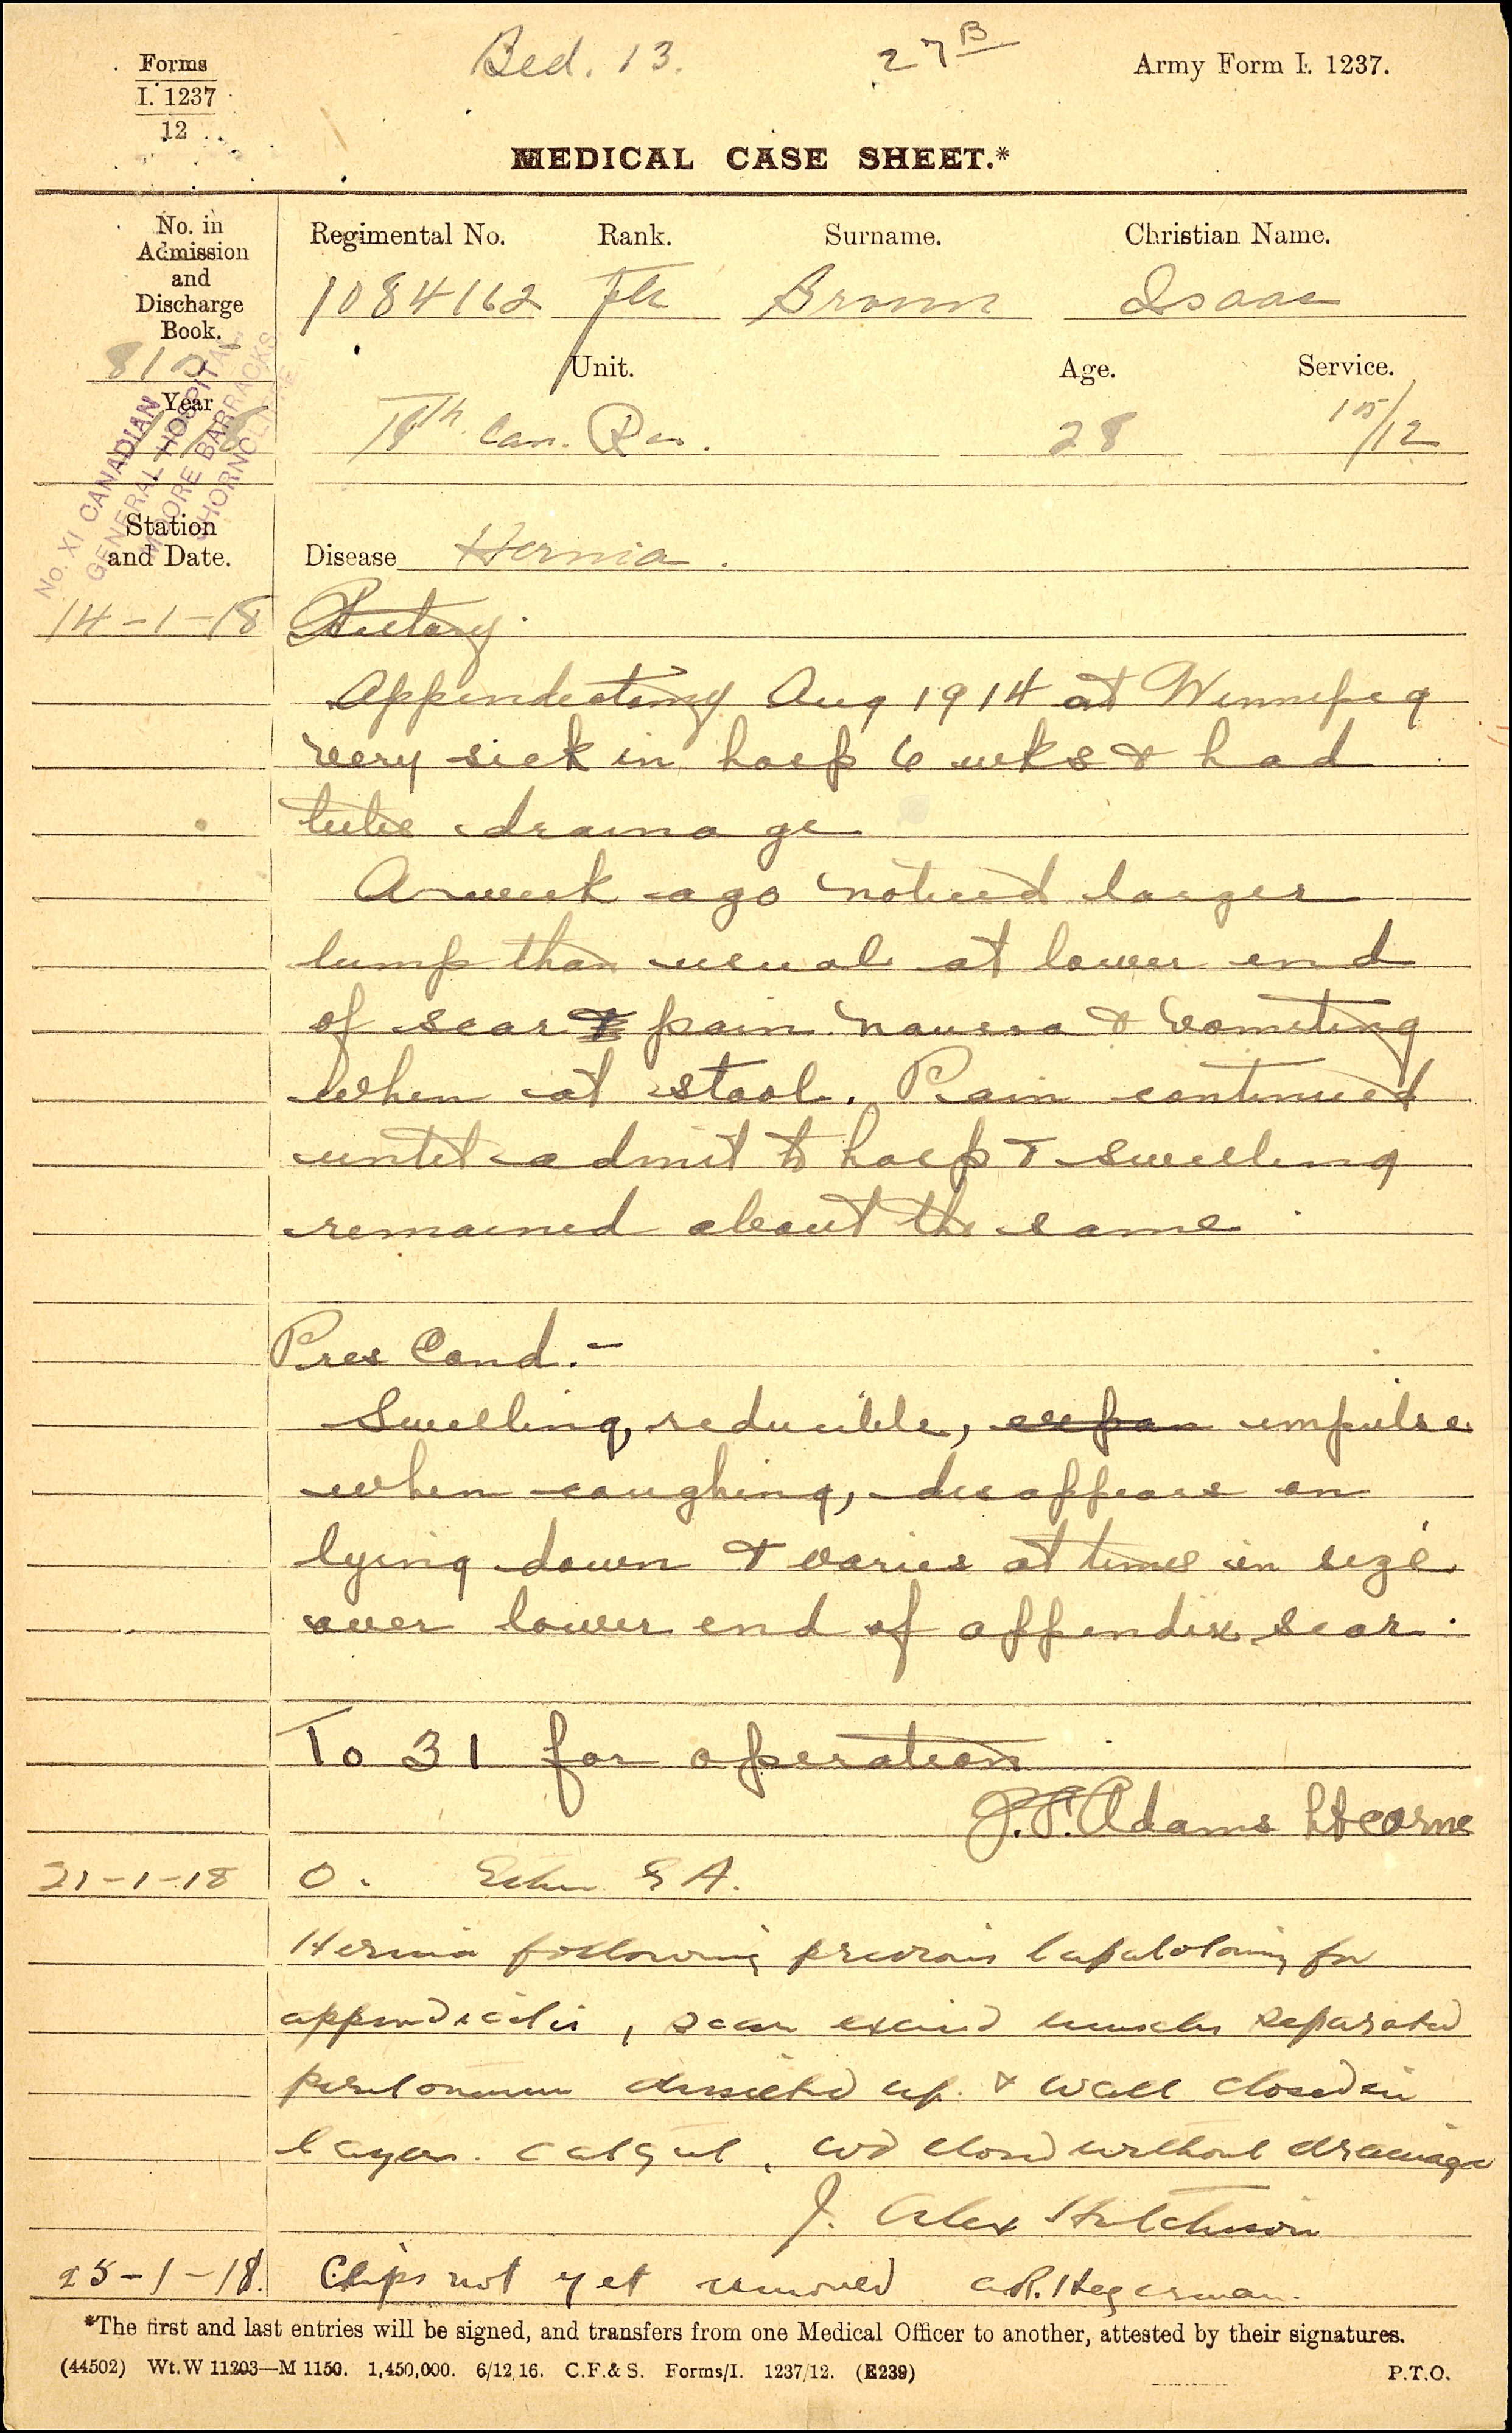 Forms
I. 1237
12
Bed. 13.
27 B
Army Form I. 1237.
MEDICAL CASE SHEET.*
No. in
Admission
and
Discharge
Book.
Year
Station
and Date.
No. XI CANADIAN
GENERAL HOSPITAL
MOORE BARRACKS
SHORNCLIFFE
Regimental No. Rank. Surname. Christian Name.
1084162 Pte Brown Isaac
Unit. Age. Service.
18th Can. Res. 28 15/12
Disease Hernia.
14-1-18 History.
Appendectomy Aug 1914 at Winnipeg
very sick in hosp 6 wks & had
tube drainage
A week ago noticed larger
lump than usual at lower end
of scar & pain nausea & vomiting
when at stool. Pain continued
until admit to hosp & swelling
remained about the same
Pres Cond.-
Swelling, reducible, expan impulse
when coughing, disappears on
lying down & varies at times in size
over lower end of appendix scar.
To 31 for operation
J.F. Adams
21-1-18 O. Ether G A.
Hernia following previous laparotomy for
appendicitis, scar excised muscles separated
peritoneum dissected up. & wall closed in
layers. catgut, wd closed without drainage
J. Alex Hutchison
25-1-18. Clips not yet removed Hegerman.
*The first and last entries will be signed, and transfers from one Medical Officer to another, attested by their signatures.
(44502) Wt. W 11203—M 1150. 1,450,000. 6/12 16. C.F. & S. Forms/I. 1237/12. (E239) P.T.O.